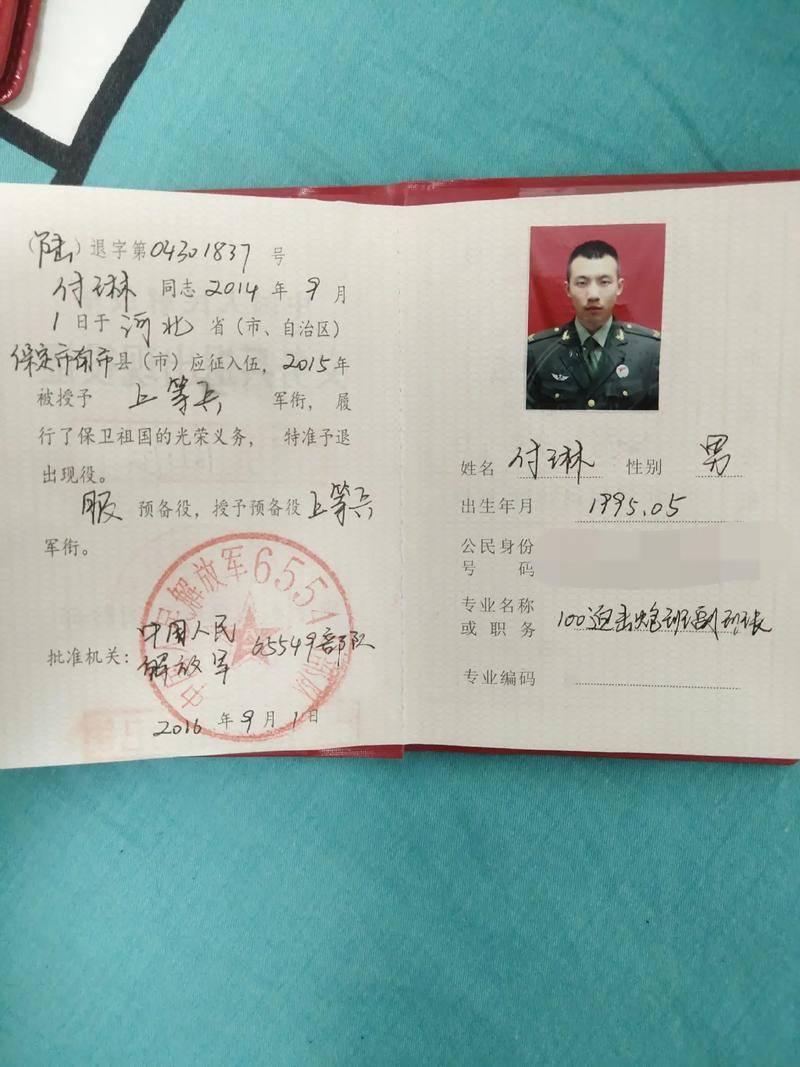 （陆）退字第04301837号
付琳 同志2014年9月
1日于河北省（市、自治区）
保定市南市县（市）应征入伍，2015年
被授予 上等兵 军衔，履
行了保卫祖国的光荣义务，特准予退
出现役。
服 预备役，授予预备役上等兵
军衔。
批准机关：中国人民
解放军 65549部队
2016年9月1日
姓名 付琳 性别 男
出生年月 1995.05
公民身份
号码
专业名称
或职务 100迫击炮班副班长
专业编码